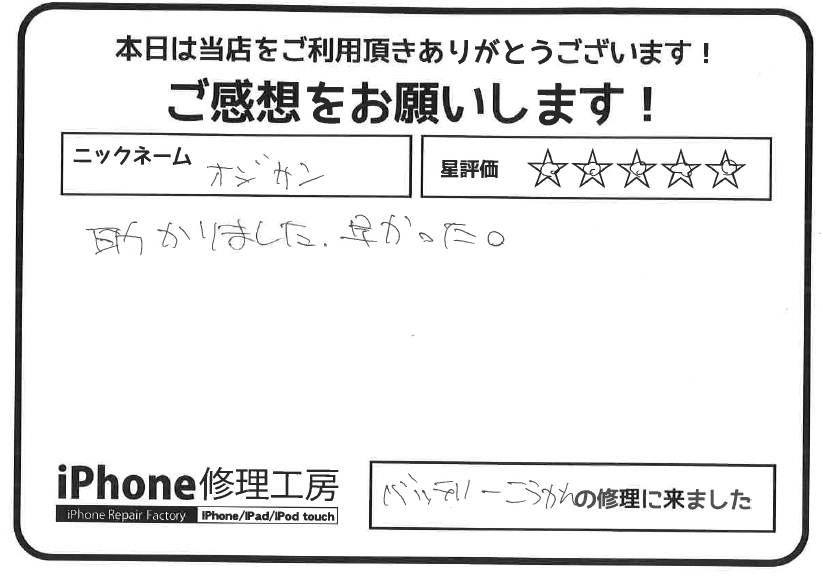 本日は当店をご利用頂きありがとうございます！
ご感想をお願いします！
ニックネーム オジサン
星評価 ☆☆☆☆☆
助かりました．早かった。
iPhone修理工房
iPhone Repair Factory iPhone/iPad/iPod touch
バッテリーこうかんの修理に来ました